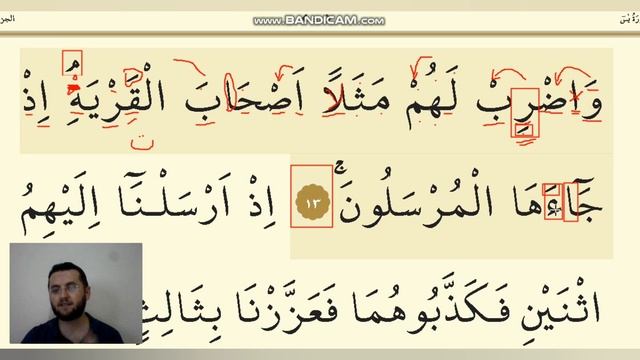 www.BANDICAM.com
وَاضْرِبْ لَهُمْ مَثَلًا اَصْحَابَ الْقَرْيَةِۢ اِذْ
جَٓاءَهَا الْمُرْسَلُونَۚ ١٣ اِذْ اَرْسَلْنَٓا اِلَيْهِمُ
اثْنَيْنِ فَكَذَّبُوهُمَا فَعَزَّزْنَا بِثَالِثٍ